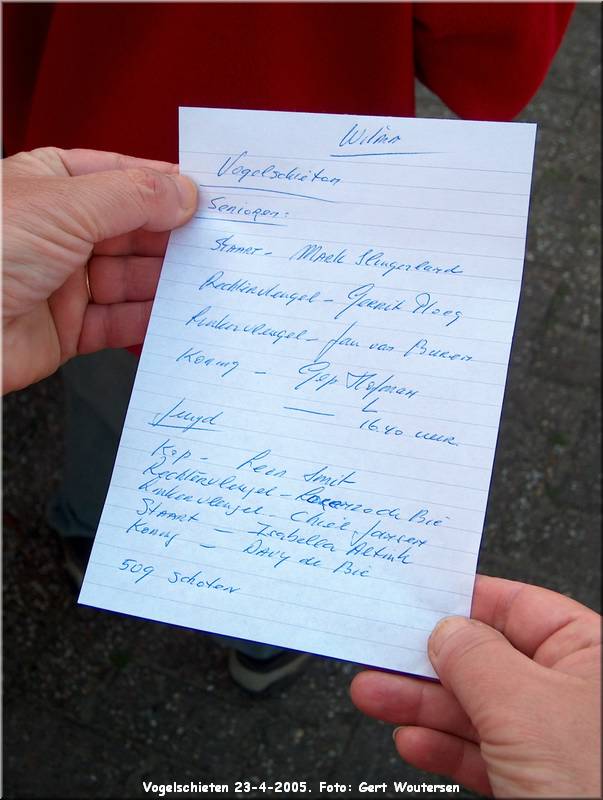 Wilma
Vogelschieten
Senioren:
Staart - Mark Slingerland
Rechtervleugel - Gerrit Ploeg
Linkervleugel - Jan van Buren
Koning - Gep Hofman
16.40 uur.
Jeugd
Kop - Leen Smit
Rechtervleugel - de Bie
Linkervleugel - Chiel Jansen
Staart - Isabella Altink
Konig - Davy de Bie
509 schoten
Vogelschieten 23-4-2005. Foto: Gert Woutersen